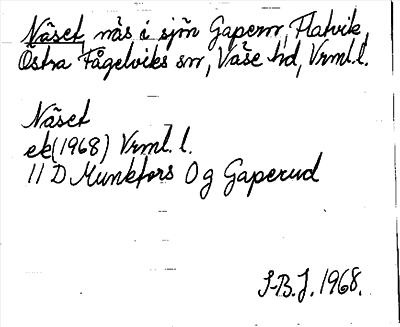 Näset, näs i sjön Gapern, Flatvik,
Östra Fågelviks sn, Väse hd, Vrml. l.
Näset
ek (1968) Vrml. l.
11 D Munkfors 0 g Gaperud
S-B.J. 1968.